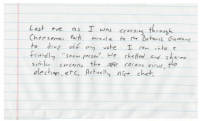 Last eve as I was crossing through
Cheeseman Park enroute to the Botanic Gardens
to drop off my vote I ran into a
friendly "snow person". We chatted and shared
similar concerns the corona virus, the
election, etc. Actually nice chat.